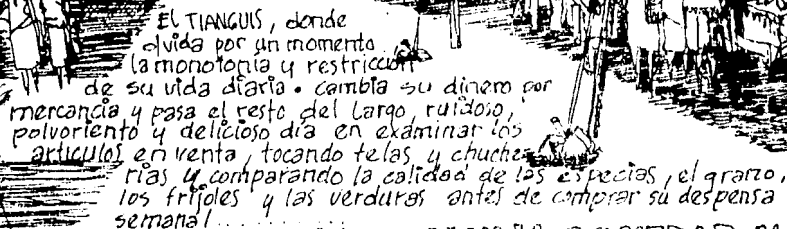 EL TIANGUIS, donde
olvida por un momento
la monotonia y restricción
de su vida diaria. cambia su dinero por
mercancia y pasa el resto del largo, ruidoso,
polvoriento y delicioso dia en examinar los
articulos en venta, tocando telas y chuche-
rias y comparando la calidad de las especias, el grano,
los frijoles y las verduras antes de comprar su despensa
semanal............